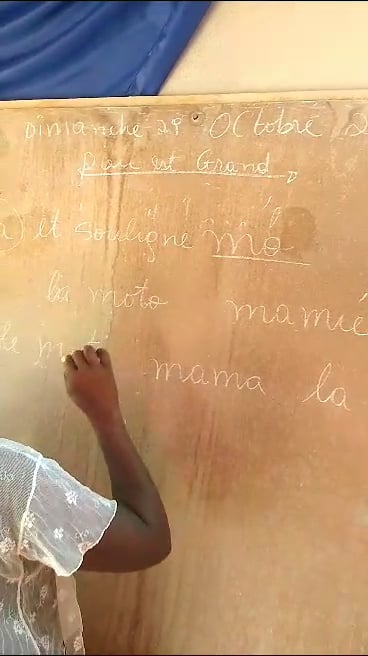 Dimanche 29 Octobre 2
est Grand
a) et Souligne mo
la moto mamie
le mot mama la